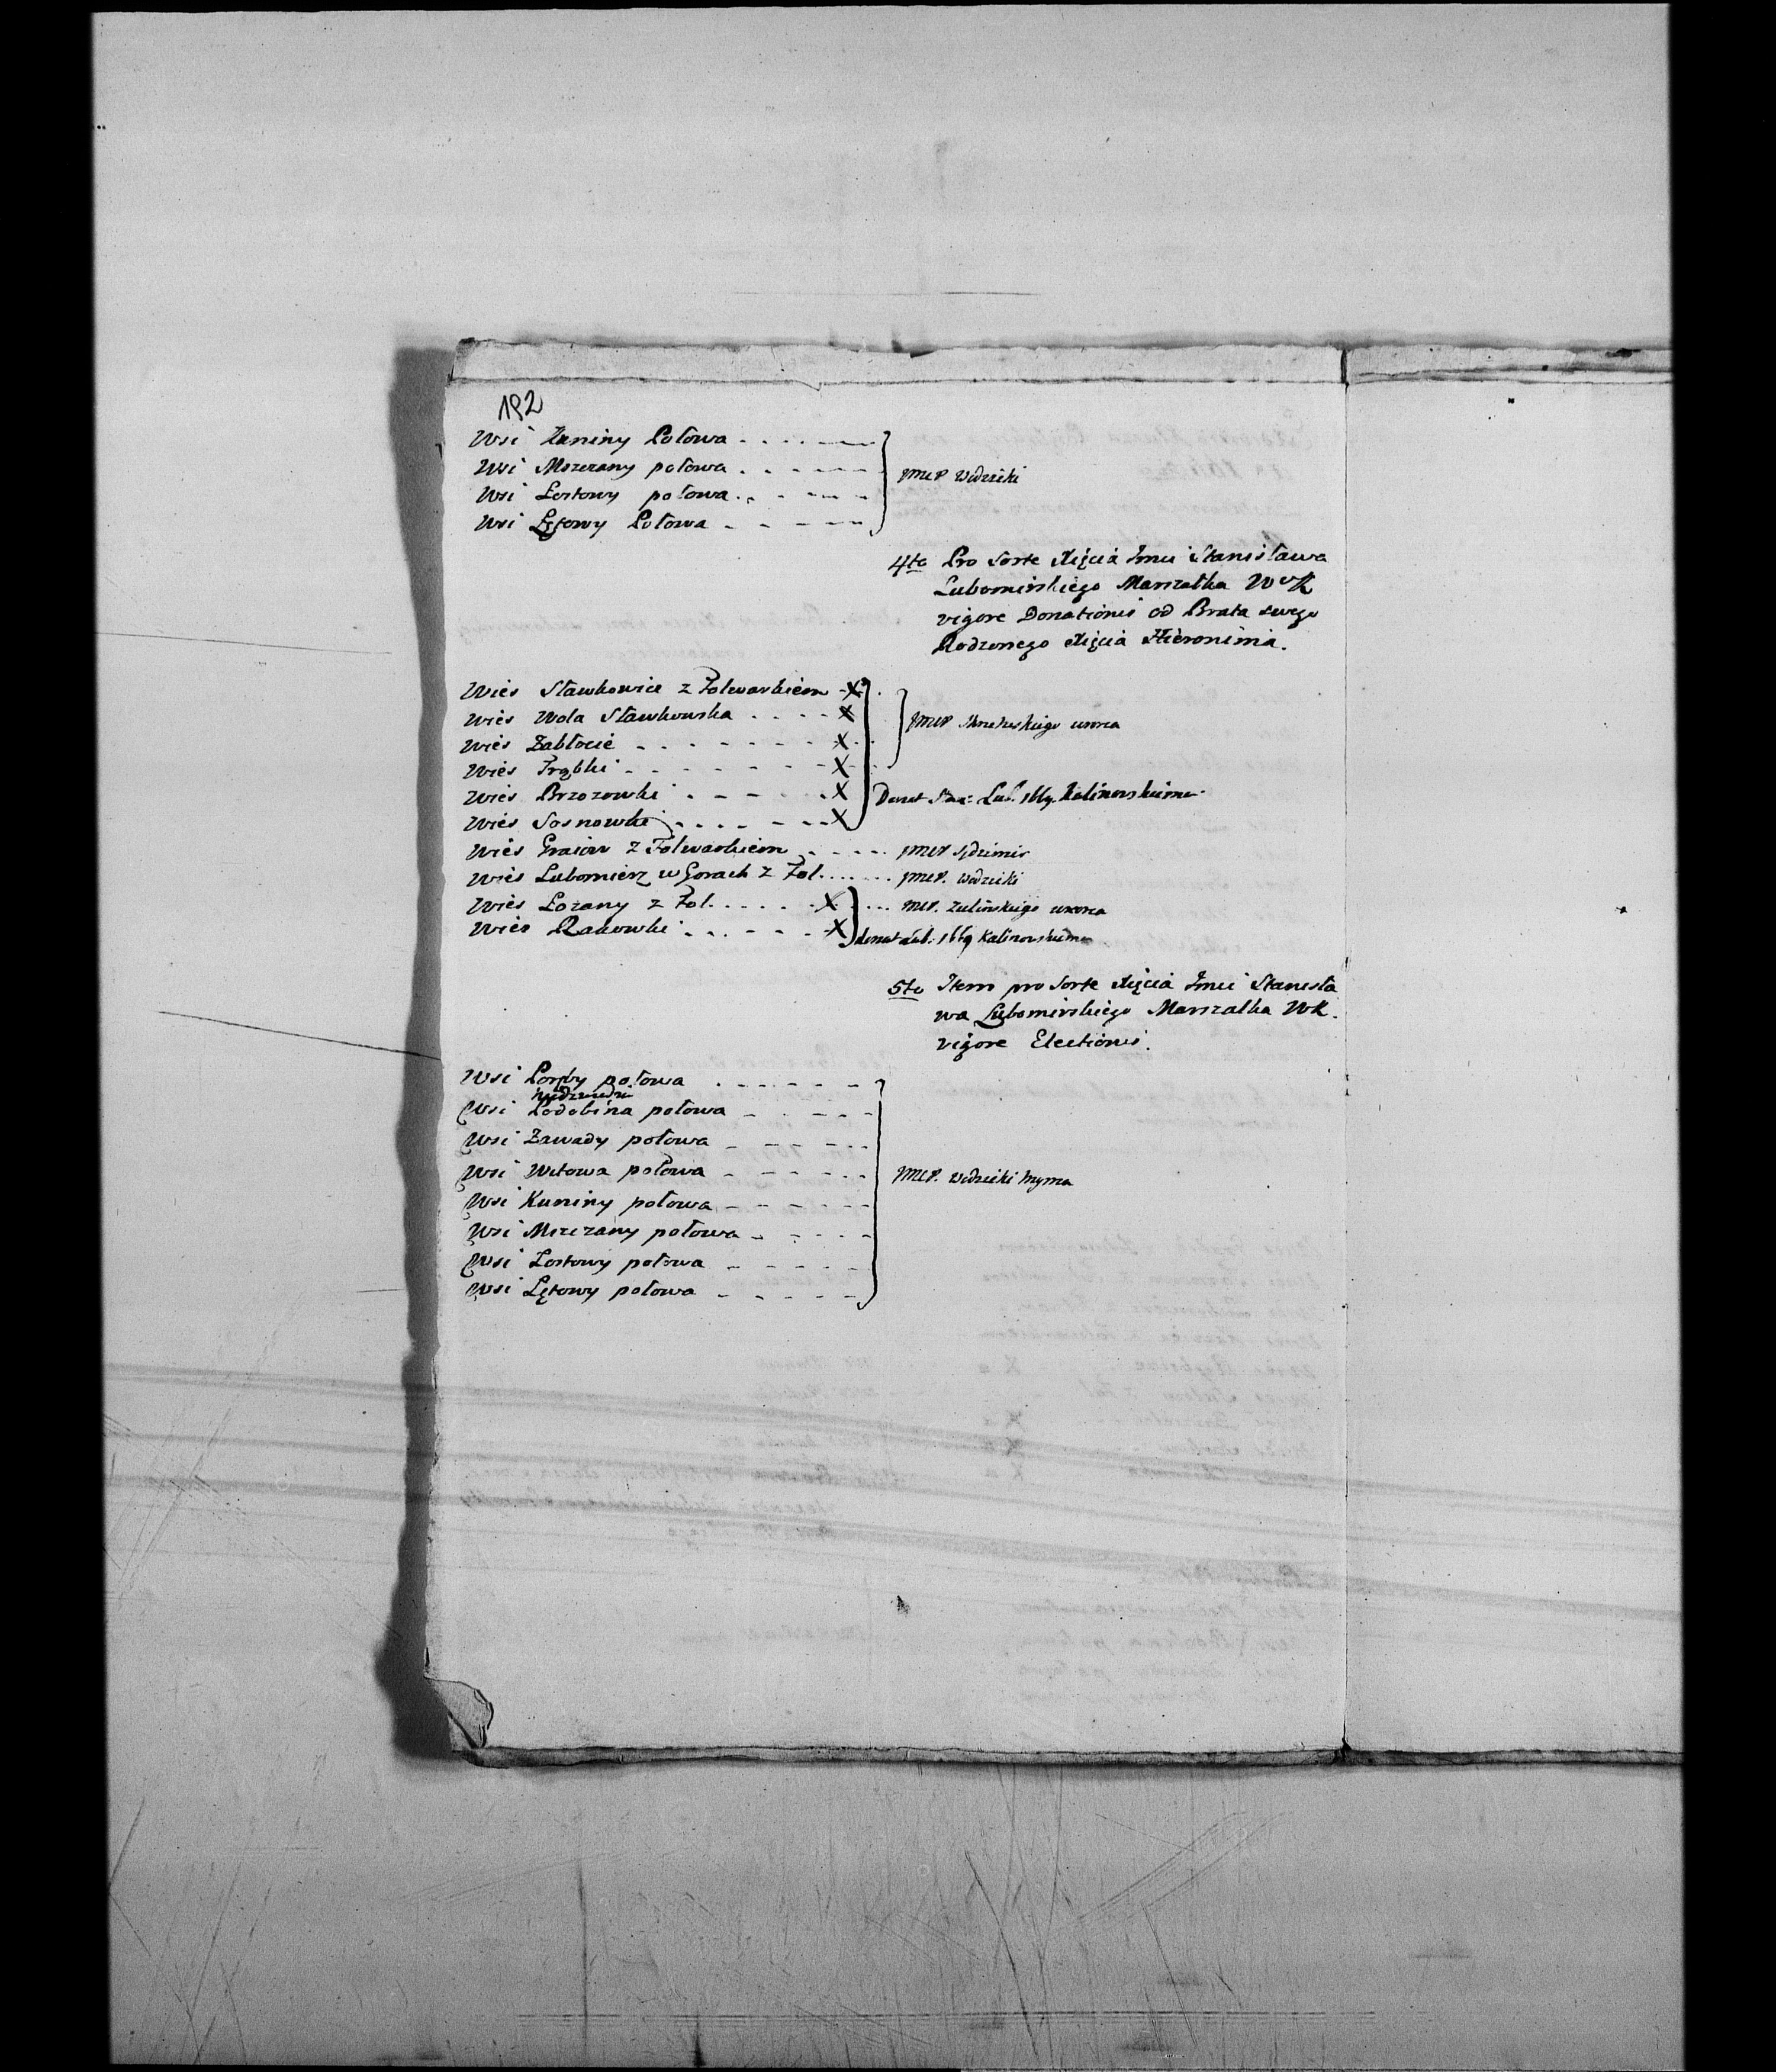 192
Wsi Kuniny Połowa
Wsi Mszczany połowa
Wsi Lostowy połowa
Wsi Lętowy Połowa
JMCP Wodzicki
4to Pro Sorte Xięcia Jmci Stanisława
Lubomirskiego Marszałka W K
vigore Donationis od Brata swego
Rodzonego Xięcia Hieronima.
Wies Sławkowice z Folwarkiem X
Wies Wola Sławkowska X
Wies Zabłocie X
Wies Frąbki X
Wies Brzozowki X
Wies Sosnowki X
JMCP
Lub. 1669. Kalinowskiemu
Wies Graiow z Folwarkiem JMCP
Wies Lubomierz w Gorach z Fol. JMCP. Wodzicki
Wies Lozany z Fol. X
Wies Rakowki X
Lub. 1669 Kalinowskiemu
5to Item pro Sorte Xięcia Jmci Stanisła
wa Lubomirskiego Marszałka WK.
vigore Electionis.
Wsi Poręby połowa
Wsi Podobina połowa
Wsi Zawady połowa
Wsi Witowa połowa
Wsi Kuniny połowa
Wsi Mszczany połowa
Wsi Lostowy połowa
Wsi Lętowy połowa
JMCP. Wodzicki trzyma